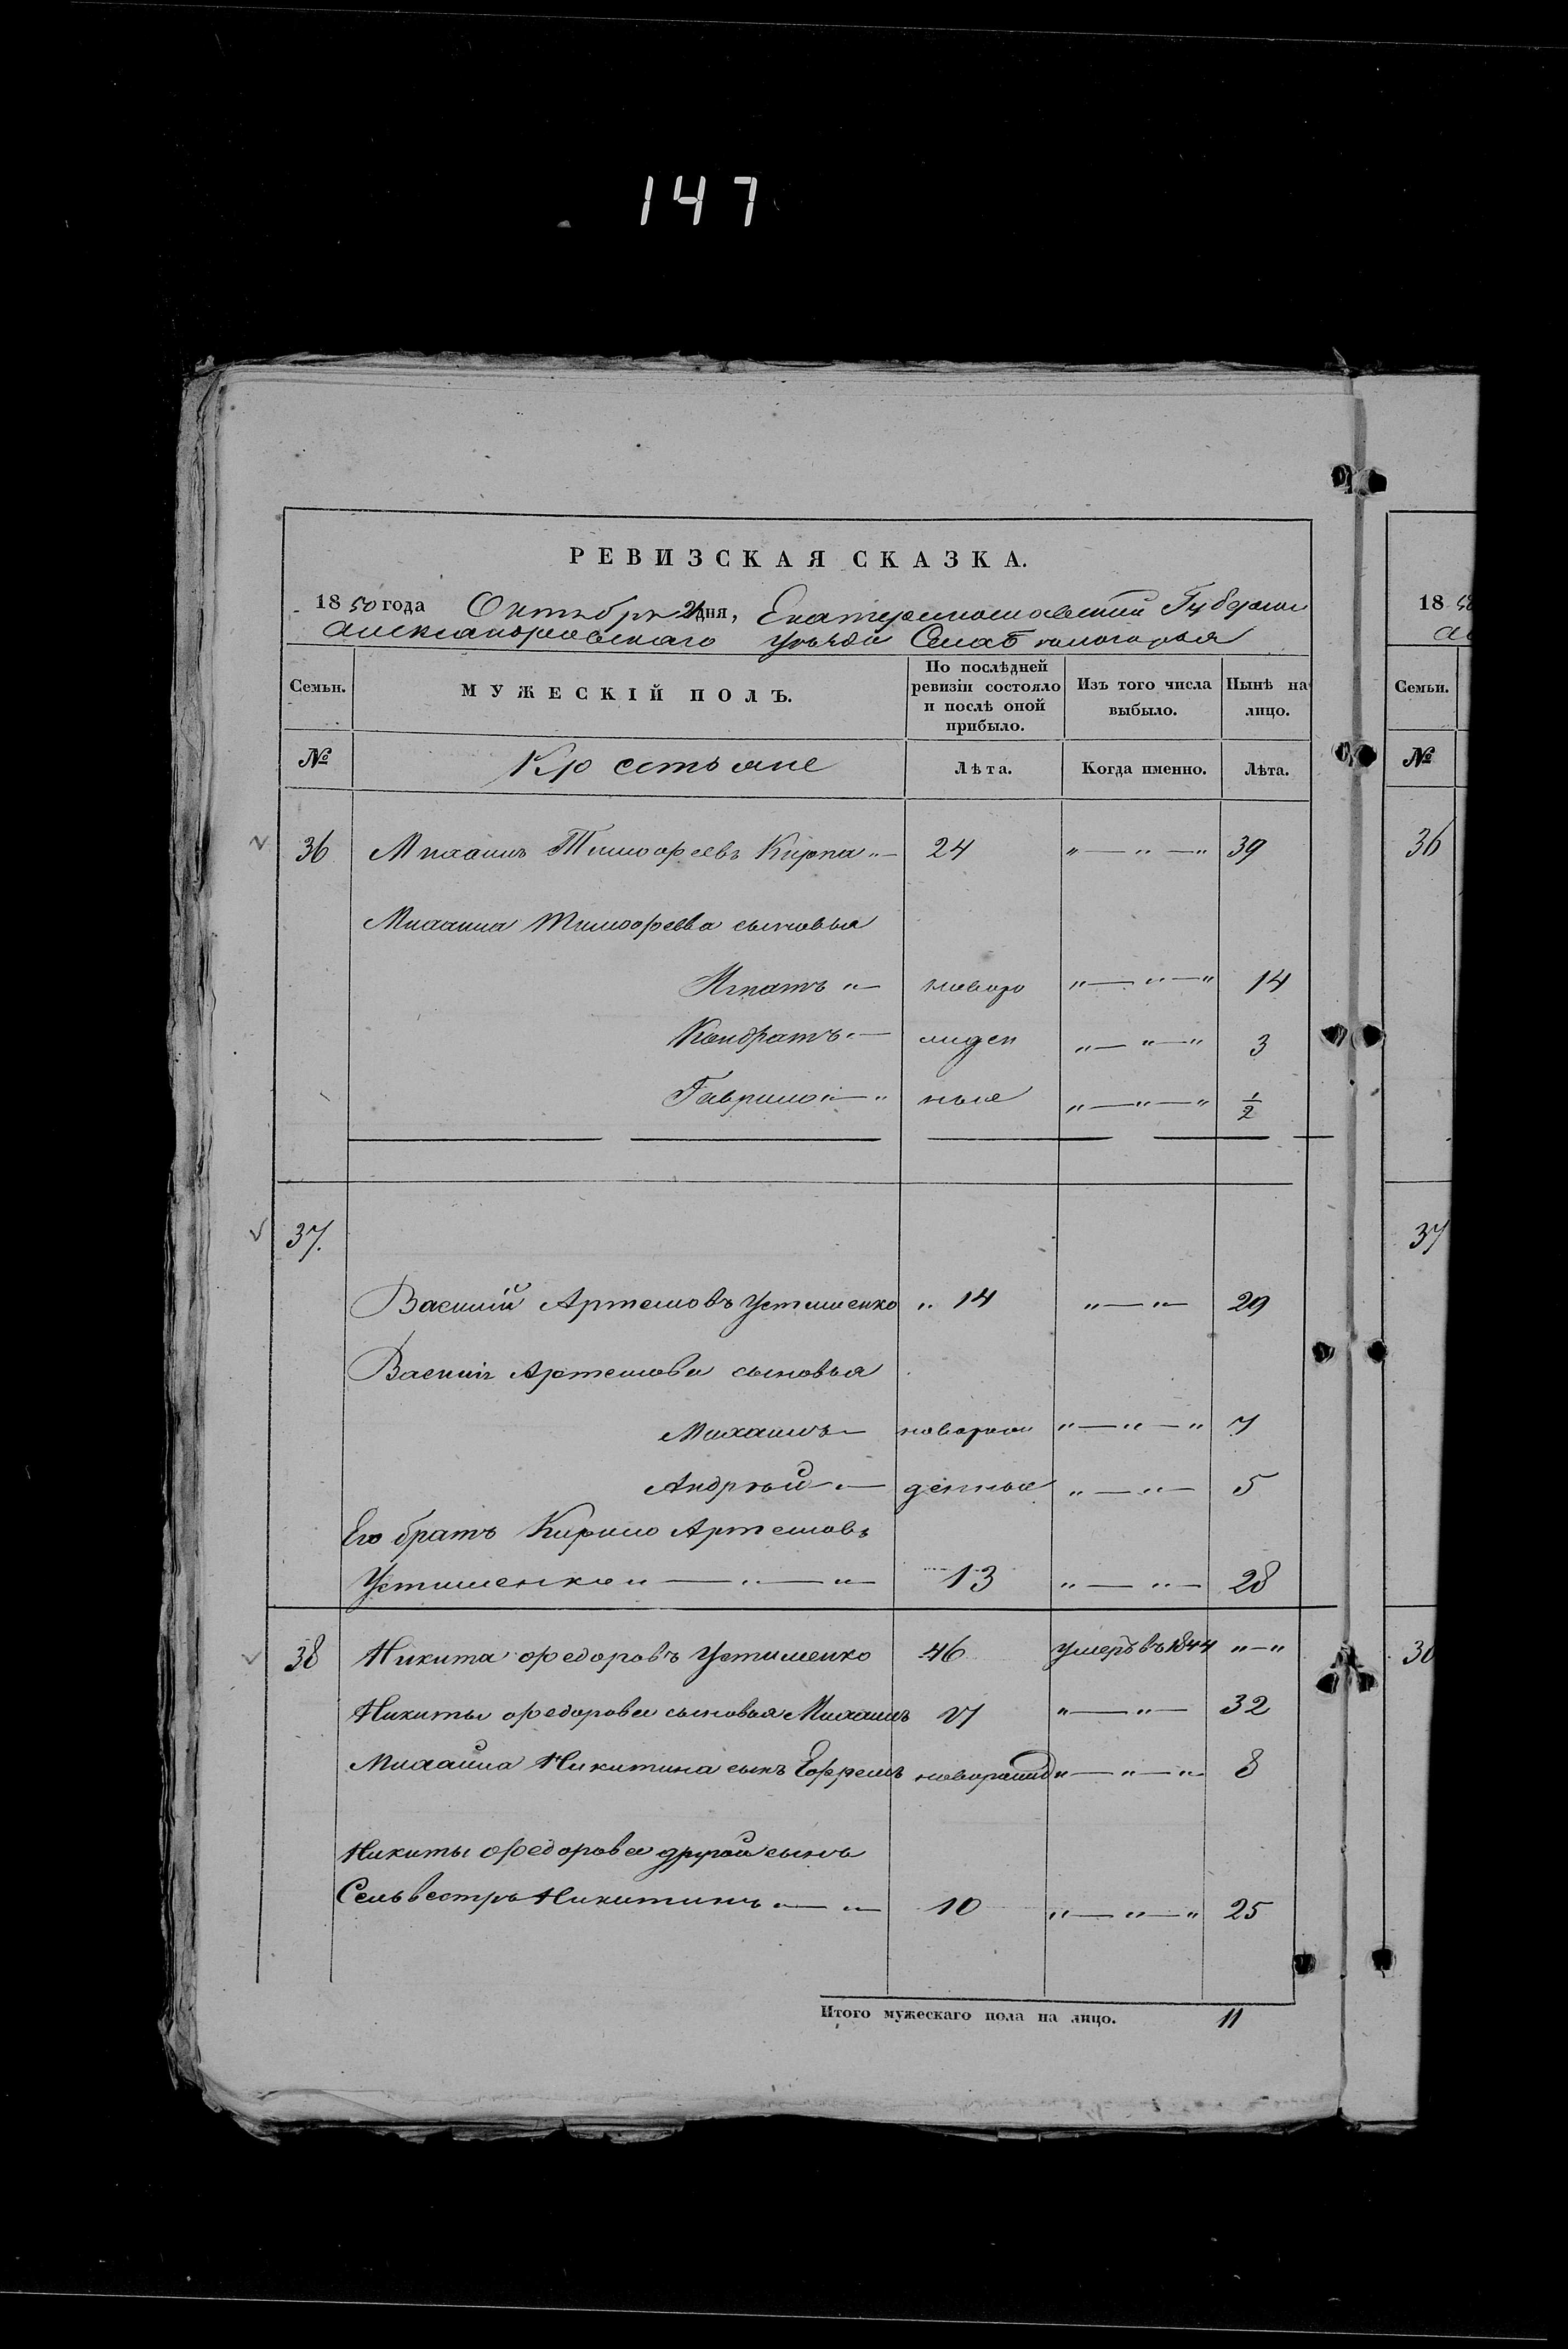 147
РЕВИЗСКАЯ СКАЗКА.
1850 года Октября 21 дня, Екатеринославской Губернии
Александровскаго уѣзда Села
Семьи. МУЖЕСКІЙ ПОЛЪ. По послѣдней ревизіи состояло и послѣ оной прибыло. Изъ того числа выбыло. Нынѣ на лицо.
№ Крестьяне Лѣта. Когда именно. Лѣта.
36 Михаилъ Тимофеевъ Кирпа „— 24 „—„—„ 39
Михаила Тимофеева сыновья
Игнатъ „— новоро „—„—„ 14
Кондратъ „— жден „—„—„ 3
Гаврило „—„ ные „—„—„ 1/2
37.
Василий Артемовъ Устименко „ 14 „—„— 29
Василія Артемова сыновья
Михаилъ — новорож „—„—„ 7
Андрѣй „— денные „—„— 5
Его братъ Кирило Артемовъ
Устименко „—„—„— 13 „—„— 28
38 Никита Федоровъ Устименко 46 умеръ въ 1844 „—„
Никиты Федорова сыновья Михаилъ 17 „—„— 32
Михаила Никитина сынъ Ефремъ новорожд „—„—„ 8
Никиты Федорова другой сынъ
Сельвестръ Никитинъ „—„— 10 „—„—„ 25
Итого мужескаго пола на лицо. 11
18 50
Семьи.
№
36
37
38